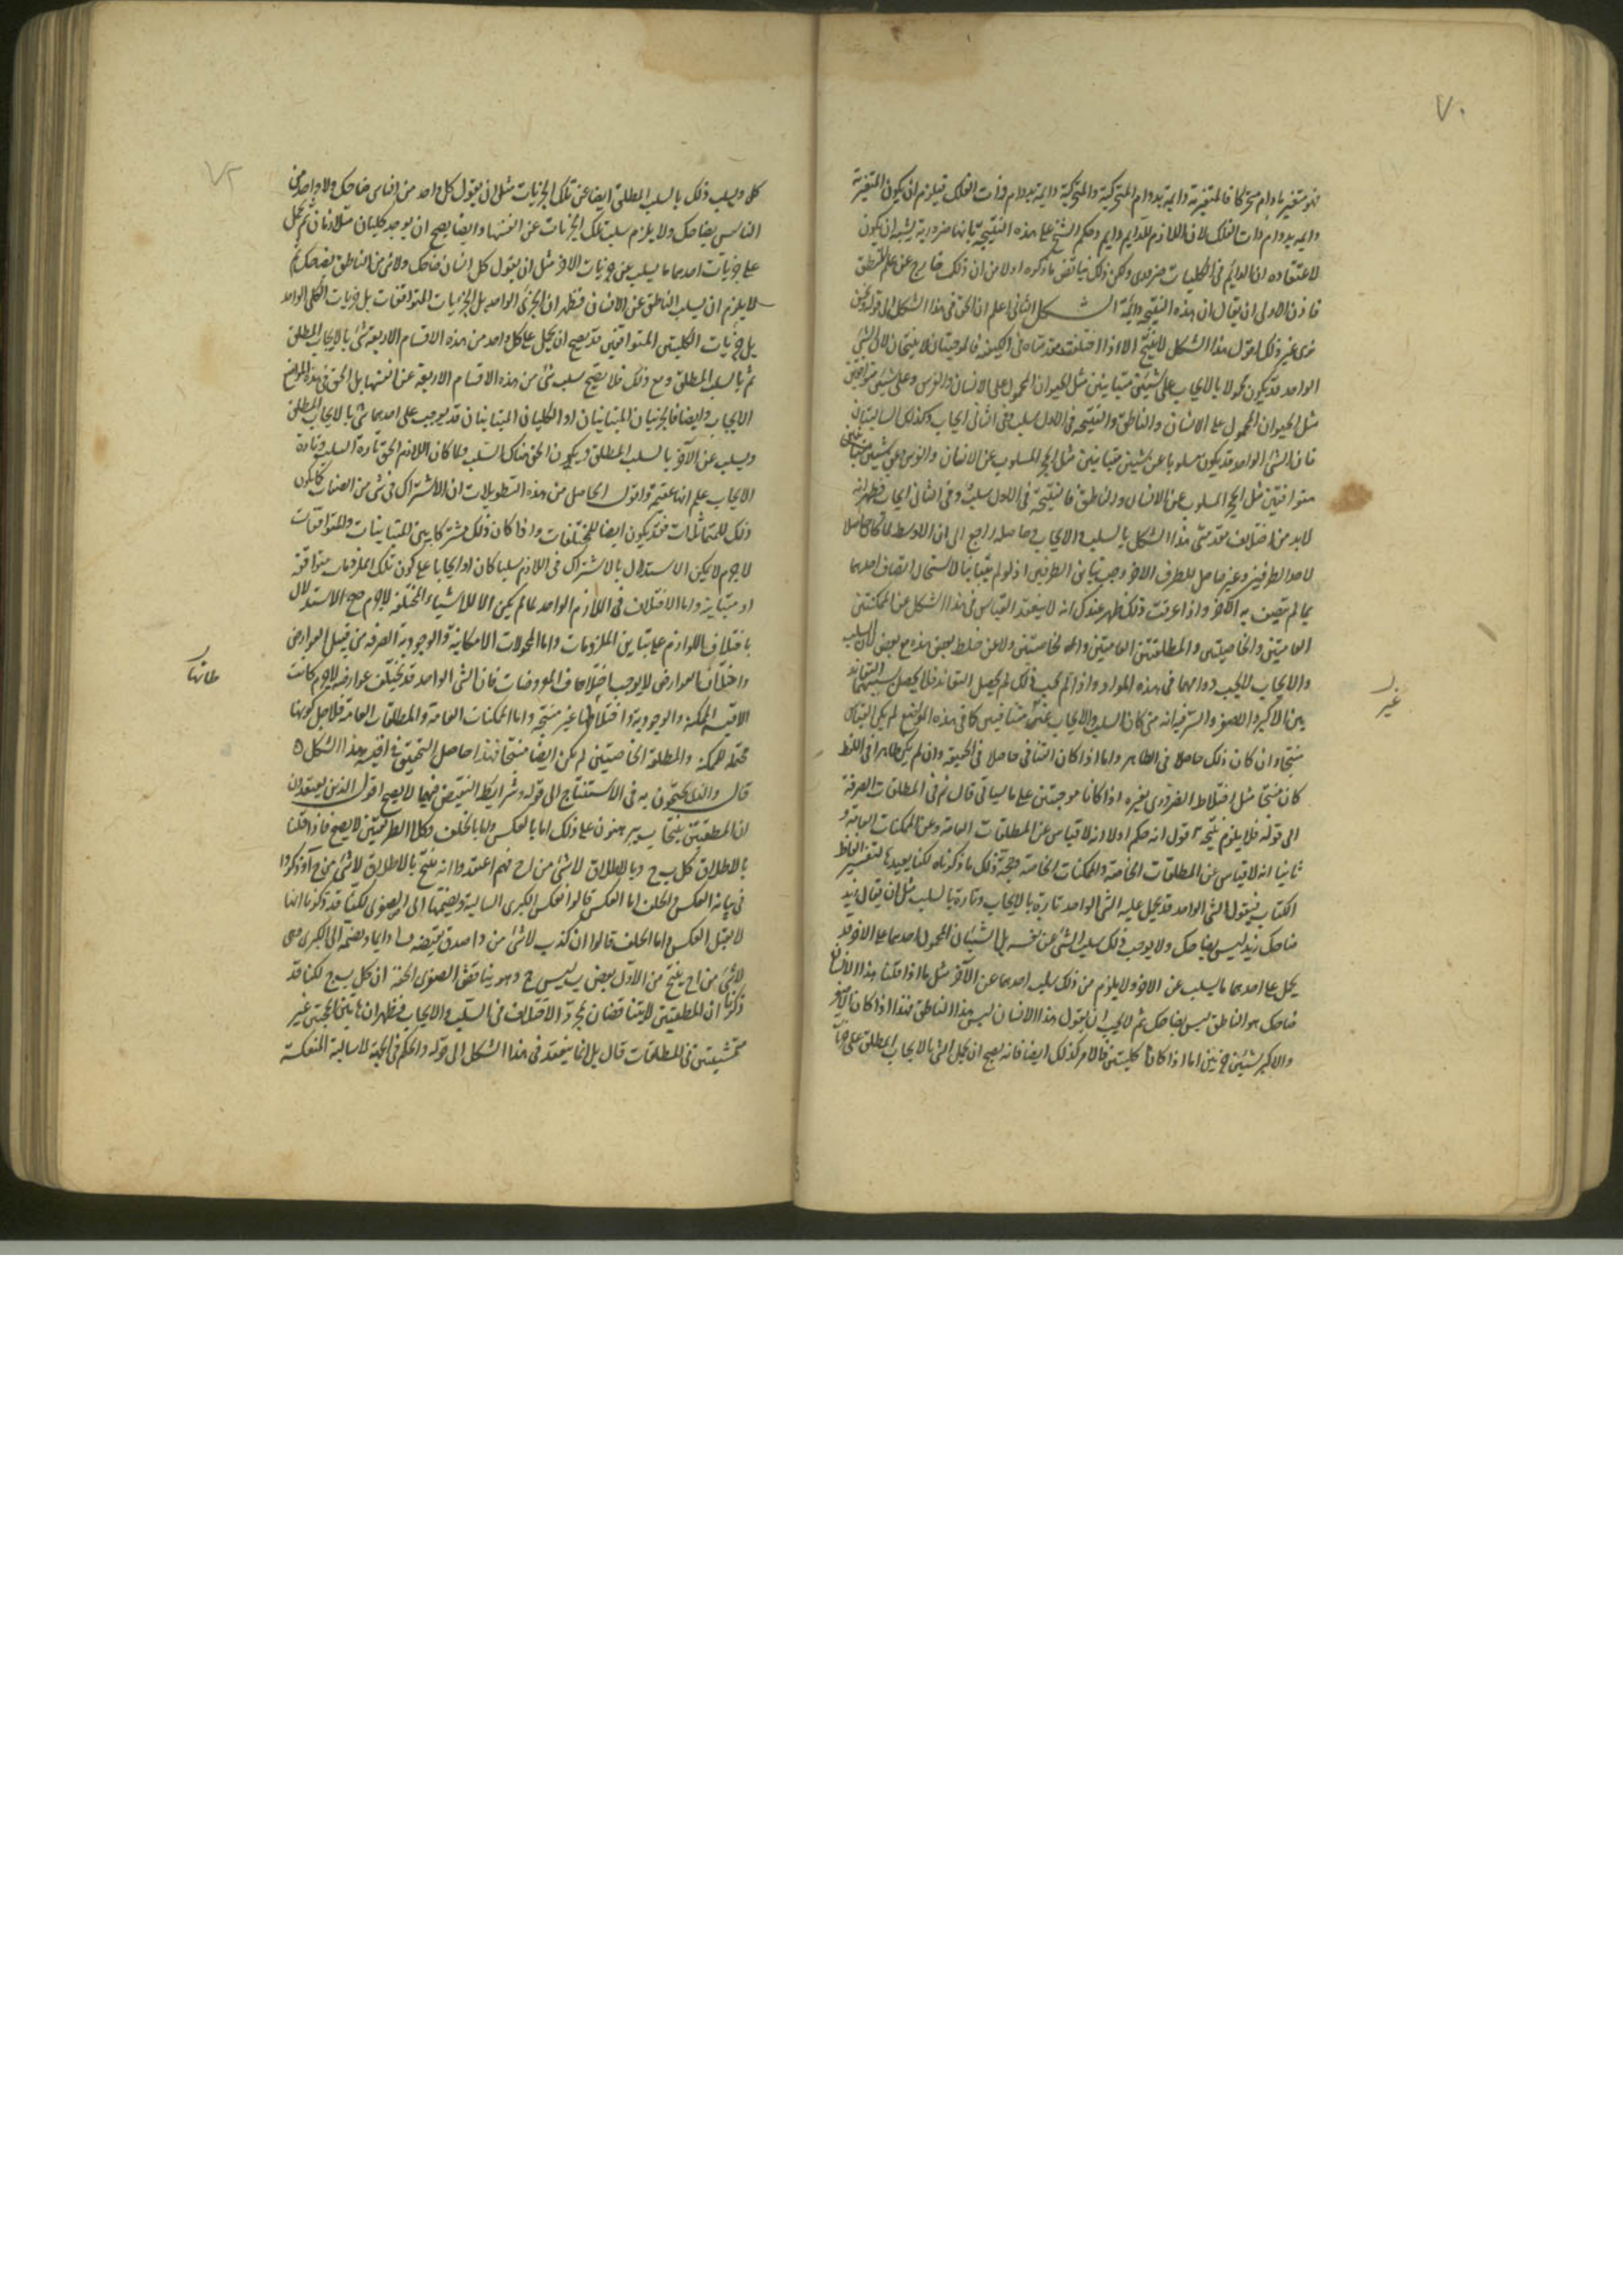 ٧٠
فهو متغير ما دام متحركا فالمتغيرية دايمة بدوام المتحركية والمتحركية دايمة بدوام ذات الفلك فيلزم ان يكون المتغيرية
دايمة بدوام ذات الفلك لان اللازم للدايم دايم وحكم الشيخ على هذه النتيجة بانها ضرورية يشبه ان يكون
لاعتقاده ان الدايم في الكليات ضروري ولكن ذلك يناقض ما ذكره اولا من ان ذلك خارج عن علم المنطق
فاذن الاولى ان يقال ان هذه النتيجة دائمة الشكل الثاني اعلم ان الحق في هذا الشكل الى قوله ونحن
نرى غير ذلك اقول هذا الشكل لا ينتج الا اذا اختلفت مقدمتاه في الكيف فالموجبتان لا ينتجان لان الشئ
الواحد قد يكون محمولا بالايجاب على شيئين متباينين مثل الحيوان المحمول على الانسان والفرس وعلى شيئين متوافقين
مثل الحيوان المحمول على الانسان والناطق والنتيجة في الاول سلب وفي الثاني ايجاب وكذلك السالبتان
فان الشئ الواحد قد يكون مسلوبا عن شيئين متباينين مثل الحجر المسلوب عن الانسان والفرس وعن شيئين
متوافقين مثل الحجر المسلوب عن الانسان والناطق فالنتيجة في الاول سلب وفي الثاني ايجاب فظهر انه
لابد من اختلاف مقدمتى هذا الشكل بالسلب والايجاب وحاصله راجع الى ان الاوسط لما كان حاصلا
لاحد الطرفين وغير حاصل للطرف الاخر وجب تباين الطرفين اذ لو لم يتباينا لاستحال اتصاف احدهما
بما لم يتصف به الآخر واذا عرفت ذلك ظهر عندك انه لا ينعقد القياس في هذا الشكل عن الممكنتين
العامتين والخاصيتين والمطلقتين العامتين والخاصيتين ولا عن خلط بعض هذه مع بعض لان السلب
والايجاب لا يجب دوامهما في هذه المواد واذا لم يجب ذلك لم يحصل التعاند فلا يحصل بسببهما التعاند
بين الاكبر والاصغر والسر فيه انه متى كان السلب والايجاب غير متنافيين كما في هذه المواضع لم يكن القياس
غير
منتجا وان كان ذلك حاصلا في الظاهر واما اذا كان التنافي حاصلا في الحقيقة وان لم يكن ظاهرا في اللفظ
كان منتجا مثل اختلاط الضروري بغيره اذا كانا موجبتين على ما سياتي قال ثم في المطلقات الصرفة
الى قوله فلا يلزم نتيجة اقول انه حكم اولا انه لا قياس عن المطلقات العامة وعن الممكنات العامة و
ثانيا انه لا قياس عن المطلقات الخاصة والممكنات الخاصة وحجة ذلك ما ذكرناه لكنا نعيدها لتفسير الفاظ
الكتاب فنقول الشئ الواحد قد يحمل عليه الشئ الواحد تارة بالايجاب وتارة بالسلب مثل ان يقال زيد
ضاحك زيد ليس بضاحك ولا يوجب ذلك سلب الشئ عن نفسه بل الشيئان المحمول احدهما على الاخر قد
يحمل على احدهما ما يسلب عن الاخر ولا يلزم من ذلك سلب احدهما عن الآخر مثل ما اذا قلنا هذا الانسان
ضاحك هو الناطق ليس بضاحك ثم لا يجب ان نقول هذا الانسان ليس هذا الناطق فهذا اذا كان الاصغر
والاكبر شيئين جزئيين اما اذا كانا كليتين فالامر كذلك ايضا فانه يصح ان يحمل الشئ بالايجاب المطلق على جزئيات
٧٢
كل ويسلب ذلك بالسلب المطلق ايضا عن تلك الجزئيات مثل ان نقول كل واحد من الناس ضاحك ولا واحد من
الناس بضاحك ولا يلزم سلب تلك الجزئيات عن انفسها وايضا يصح ان يوجد كليان متلازمان ثم يحمل
على جزئيات احدهما ما يسلب عن جزئيات الاخر مثل ان يقول كل انسان ضاحك ولا شئ من الناطق بضاحك ثم
لا يلزم ان يسلب الناطق عن الانسان فظهر ان الجزئي الواحد بل الجزئيات المتوافقات بل جزئيات الكلي الواحد
بل جزئيات الكليتين المتوافقين قد يصح ان يحمل على كل واحد من هذه الاقسام الاربعة شئ بالايجاب المطلق
ثم بالسلب المطلق ومع ذلك فلا يصح سلب شئ من هذه الاقسام الاربعة عن انفسها بل الحق في هذه المواضع
الايجاب وايضا فالجزئيان المتباينان او الكليان المتباينان قد يوجب على احدهما شئ بالايجاب المطلق
ويسلب عن الآخر بالسلب المطلق ويكون الحق هناك السلب ولما كان اللازم الحق تارة السلب وتارة
الايجاب علم انها عقيم واقول الحاصل من هذه التطويلات ان الاشتراك في شئ من الصفات كما يكون
ذلك للمتماثلات فقد يكون ايضا للمختلفات واذا كان ذلك مشتركا بين المتباينات والمتوافقات
لاجرم لا يمكن الاستدلال بالاشتراك في اللازم سلبا كان او ايجابا على كون تلك الملزومات متوافقة
او متباينة واما الاختلاف في اللازم الواحد لما لم يكن الا للاشياء المختلفة لاجرم صح الاستدلال
باختلاف اللوازم على تباين الملزومات واما المحمولات الامكانية والوجودية الصرفة فمن قبيل العوارض
واختلاف العوارض لا يوجب اختلاف المعروضات فان الشئ الواحد قد تختلف عوارضه لاجرم كانت
الاقيسة الممكنة والوجودية واختلاطاتها غير منتجة واما الممكنات العامة والمطلقات العامة فلاجل كونها
محتملة للممكنة والمطلقة الخاصيتين لم يكن ايضا منتجا فهذا حاصل التحقيق في اقيسة هذا الشكل
قال والذي يحتجون به في الاستنتاج الى قوله وشرايط النقيض فيهما لا يصح اقول الذين يعتقدون
ان المطلقتين ينتجان يبرهنون على ذلك اما بالعكس واما بالخلف وكلا الطريقين لا يصح فاذا قلنا
بالاطلاق كل ب ج وبالاطلاق لا شئ من ا ج فهم اعتقدوا انه ينتج بالاطلاق لا شئ من ب ا وذكروا
في بيانه العكس والخلف اما العكس قالوا نعكس الكبرى السالبة ونضمها الى الصغرى لكنا قد ذكرنا انها
لا تقبل العكس واما الخلف قالوا ان كذب لا شئ من ب ا صدق نقيضه ب ا دايما ونضمه الى الكبرى وهي
لا شئ من ا ج ينتج من الاول بعض ب ليس ج وهو يناقض الصغرى الحقة ان كل ب ج لكنا قد
ذكرنا ان المطلقتين لا يتناقضان بمجرد الاختلاف في السلب والايجاب فظهر ان هاتين الحجتين غير
متمشيتين في المطلقات قال بل انما ينعقد في هذا الشكل الى قوله والحكم في الجهة لسالبة المنعكسة